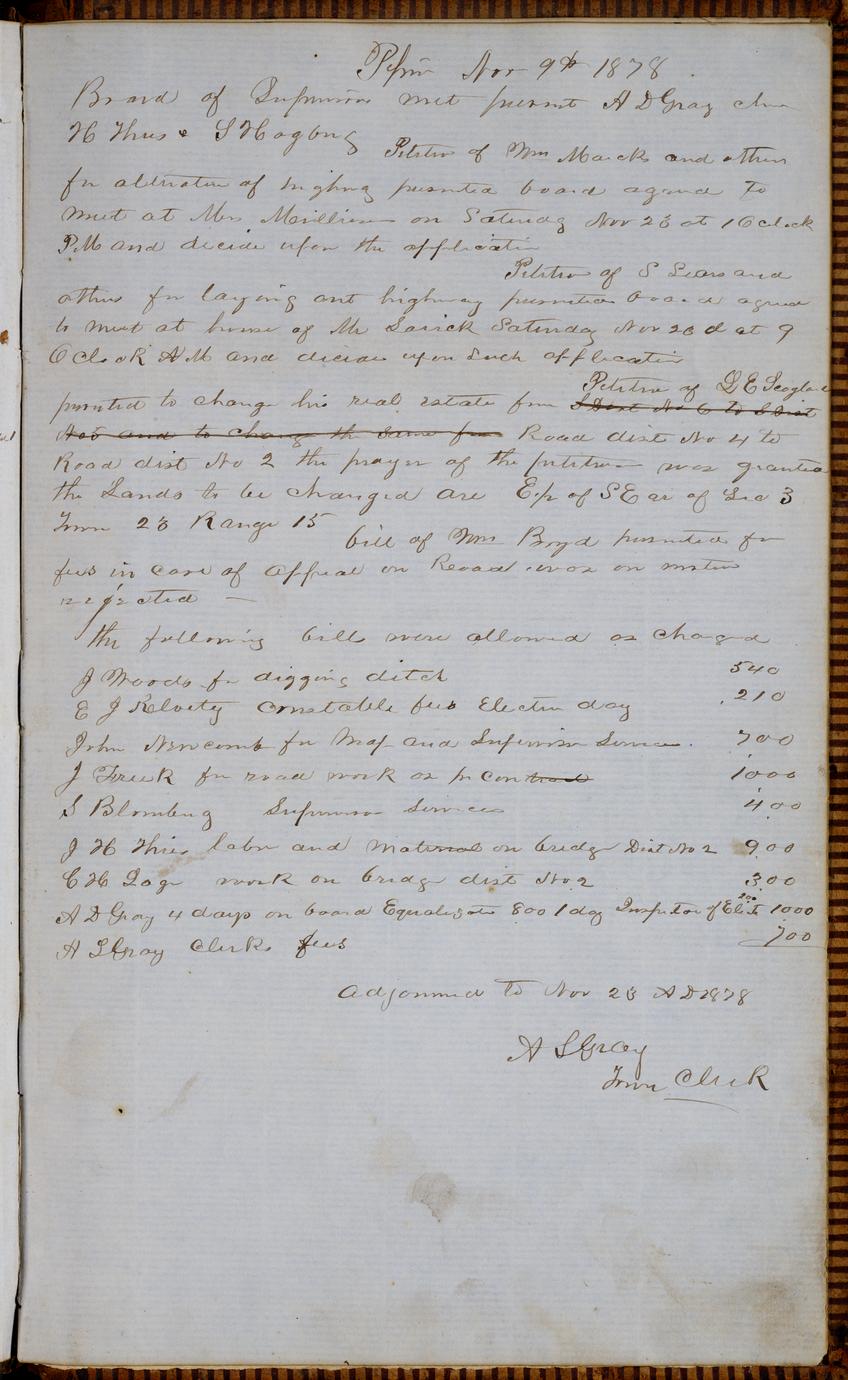 Pepin Nov 9th 1878
Board of Supervisors met present A D Gray chm
H Thies & S Hogberg
Petition of Wm Macks and others
for alteration of highway presented board agreed to
meet at Mrs on Saturday Nov 23 at 1 Oclock
P.M and decide upon the application
Petition of S Sears and
others for laying out highway presented board agreed
to meet at house of Mr Saturday Nov 23d at 9
Oclock A M and decide upon such application
Petition of
presented to change his real estate from S Dist No 6 to S Dist
No 5 and to change the same from Road dist No 4 to
Road dist No 2 the prayer of the petition was granted
the Lands to be changed are of S E qr of Sec 3
Town 23 Range 15
bill of Wm Boyd presented for
fees in case of appeal on Road was on motion
rejected —
the following bills were allowed as charged
J Woods for digging ditch 540
E J Constable fees Election day 210
John Newcomb for Map and Supervisor Services 700
J for road work as pr contract 1000
S Blomberg Supervisor Services 400
J H Thies labor and material on bridge Dist No 2 9.00
C H Page work on bridge dist No 2 3.00
A D Gray 4 days on board 800 1 day Inspector of Elect 200 1000
A S Gray Clerks fees 700
adjourned to Nov 23 A D 1878
A S Gray
Town Clerk